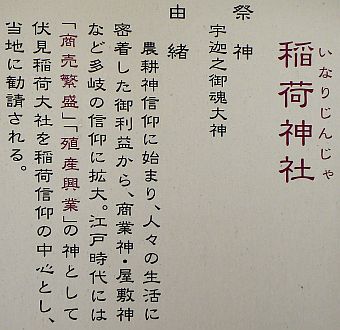 いなりじんじゃ
稲荷神社
祭神
宇迦之御魂大神
由緒
農耕神信仰に始まり、人々の生活に
密着した御利益から、商業神・屋敷神
など多岐の信仰に拡大。江戸時代には
「商売繁盛」「殖産興業」の神として
伏見稲荷大社を稲荷信仰の中心とし、
当地に勧請される。